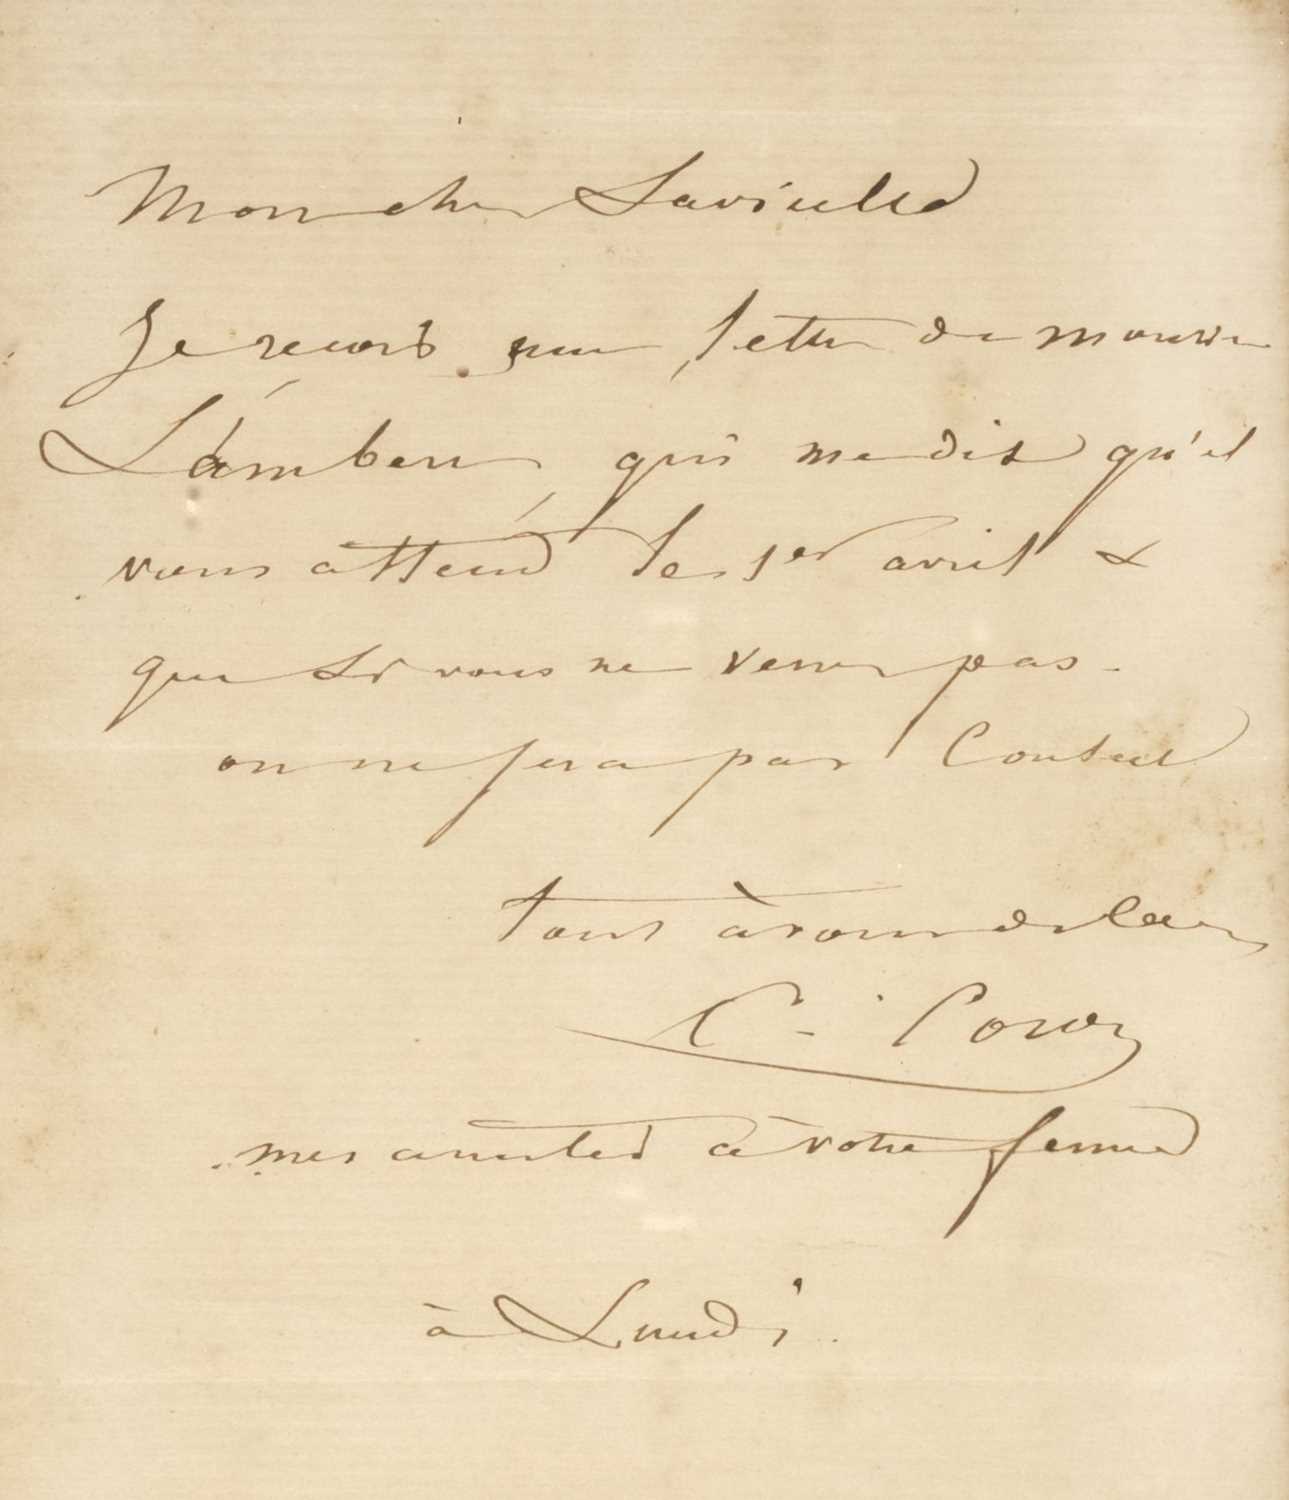 Mon cher Lavieille
Je reçois une lettre de monsieur
Lambert qui me dit qu'il
vous attend le 1er avril &
que si vous ne venez pas
on ne sera pas content
tout à vous de cœur
C. Corot
mes amitiés à votre femme
à Lundi.